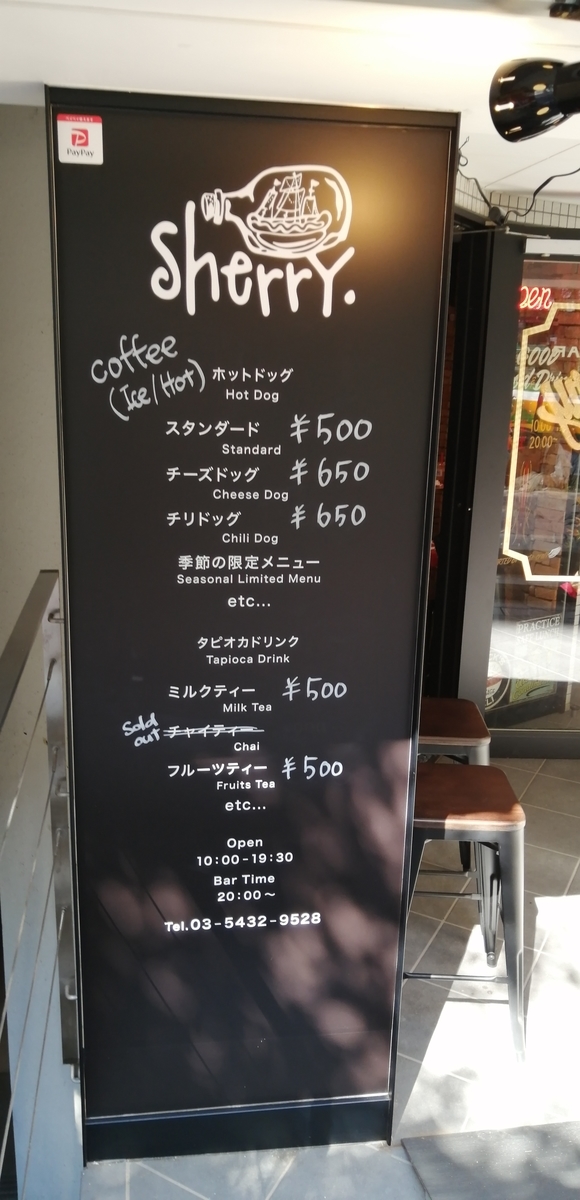 PayPay
Sherry.
coffee
(Ice/Hot)
ホットドッグ
Hot Dog
スタンダード ¥500
Standard
チーズドッグ ¥650
Cheese Dog
チリドッグ ¥650
Chili Dog
季節の限定メニュー
Seasonal Limited Menu
etc...
タピオカドリンク
Tapioca Drink
ミルクティー ¥500
Milk Tea
Sold out チャイティー
Chai
フルーツティー ¥500
Fruits Tea
etc...
Open
10:00-19:30
Bar Time
20:00〜
Tel.03-5432-9528
PRACTICE